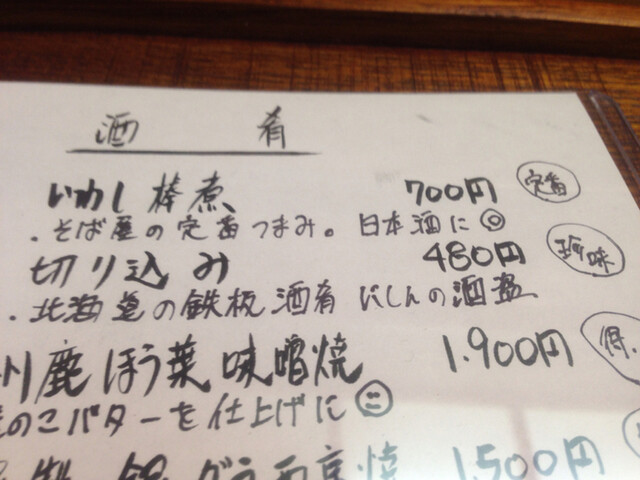 酒肴
いわし棒煮 700円 定番
・そば屋の定番つまみ。日本酒に◎
切り込み 480円 珍味
・北海道の鉄板酒肴 にしんの酒盗
川鹿ほう葉味噌焼 1,900円 得
のこバターを仕上げに
銀ダラ西京焼 1,500円